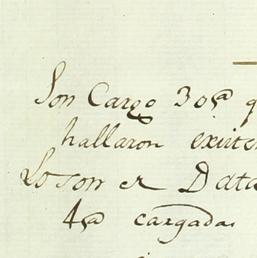 Son Cargo 30@ q
hallaron existen
Lo son en Data
4@ cargadas